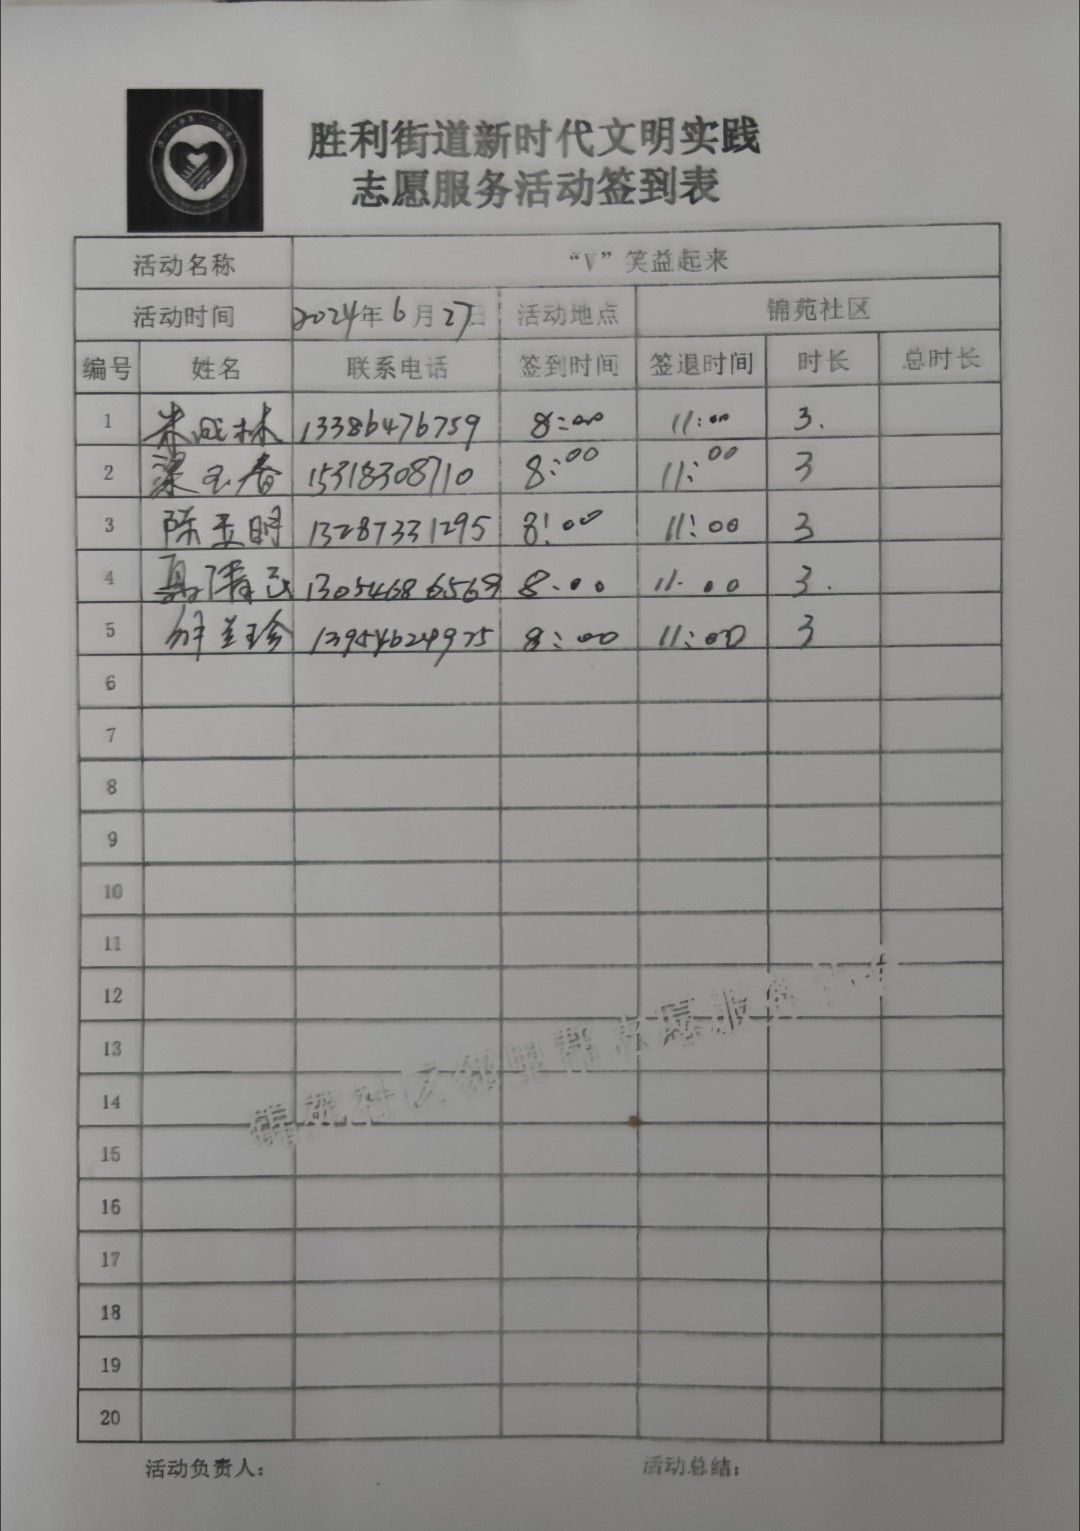 胜利街道新时代文明实践
志愿服务活动签到表
活动名称 “V”笑益起来
活动时间 2024年6月27日 活动地点 锦苑社区
编号 姓名 联系电话 签到时间 签退时间 时长 总时长
1 朱成林 13386476759 8:00 11:00 3.
2 梁玉春 15318308710 8:00 11:00 3
3 陈玉明 13287331295 8:00 11:00 3
4 13054686569 8:00 11:00 3.
5 13954624975 8:00 11:00 3
6
7
8
9
10
11
12
13
14
15
16
17
18
19
20
锦苑社区邻里帮志愿服务
活动负责人: 活动总结: